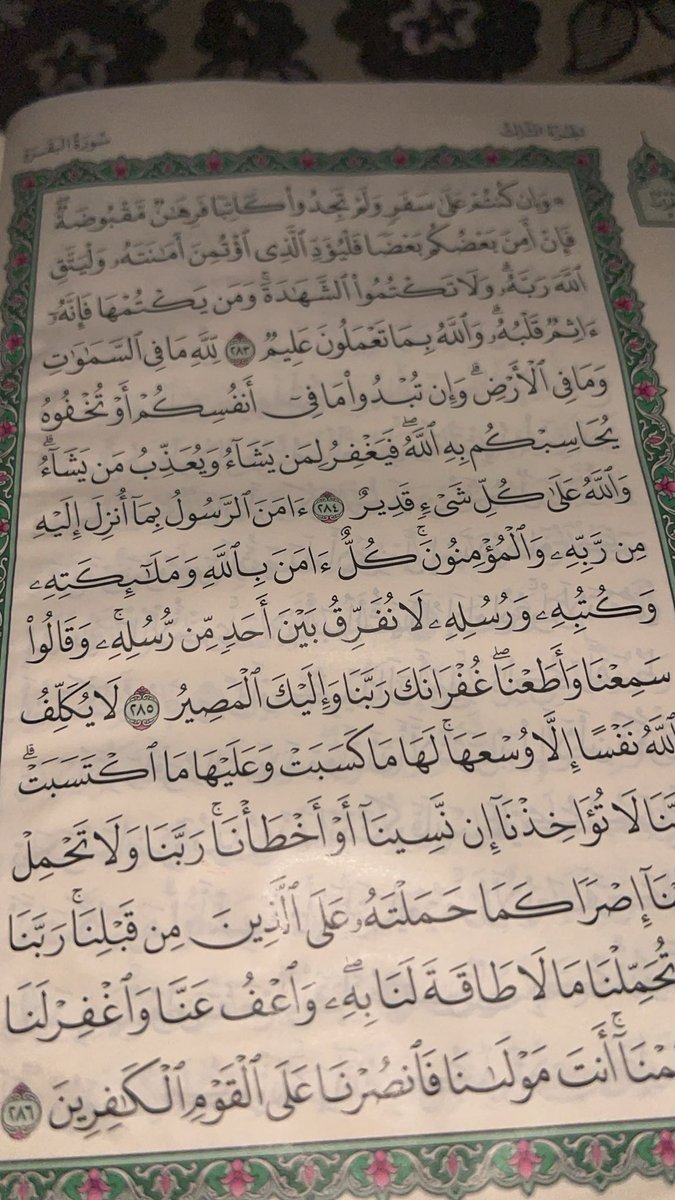 سُورَةُ البَقَرَةِ
الجُزْءُ الثَّالِثُ
۞ وَإِن كُنتُمْ عَلَىٰ سَفَرٍ وَلَمْ تَجِدُوا۟ كَاتِبًا فَرِهَـٰنٌ مَّقْبُوضَةٌ ۖ
فَإِنْ أَمِنَ بَعْضُكُم بَعْضًا فَلْيُؤَدِّ ٱلَّذِى ٱؤْتُمِنَ أَمَـٰنَتَهُۥ وَلْيَتَّقِ
ٱللَّهَ رَبَّهُۥ ۗ وَلَا تَكْتُمُوا۟ ٱلشَّهَـٰدَةَ ۚ وَمَن يَكْتُمْهَا فَإِنَّهُۥٓ
ءَاثِمٌ قَلْبُهُۥ ۗ وَٱللَّهُ بِمَا تَعْمَلُونَ عَلِيمٌ ٢٨٣ لِّلَّهِ مَا فِى ٱلسَّمَـٰوَٰتِ
وَمَا فِى ٱلْأَرْضِ ۗ وَإِن تُبْدُوا۟ مَا فِىٓ أَنفُسِكُمْ أَوْ تُخْفُوهُ
يُحَاسِبْكُم بِهِ ٱللَّهُ ۖ فَيَغْفِرُ لِمَن يَشَآءُ وَيُعَذِّبُ مَن يَشَآءُ ۗ
وَٱللَّهُ عَلَىٰ كُلِّ شَىْءٍ قَدِيرٌ ٢٨٤ ءَامَنَ ٱلرَّسُولُ بِمَآ أُنزِلَ إِلَيْهِ
مِن رَّبِّهِۦ وَٱلْمُؤْمِنُونَ ۚ كُلٌّ ءَامَنَ بِٱللَّهِ وَمَلَـٰٓئِكَتِهِۦ
وَكُتُبِهِۦ وَرُسُلِهِۦ لَا نُفَرِّقُ بَيْنَ أَحَدٍ مِّن رُّسُلِهِۦ ۚ وَقَالُوا۟
سَمِعْنَا وَأَطَعْنَا ۖ غُفْرَانَكَ رَبَّنَا وَإِلَيْكَ ٱلْمَصِيرُ ٢٨٥ لَا يُكَلِّفُ
ٱللَّهُ نَفْسًا إِلَّا وُسْعَهَا ۚ لَهَا مَا كَسَبَتْ وَعَلَيْهَا مَا ٱكْتَسَبَتْ ۗ
بَّنَا لَا تُؤَاخِذْنَآ إِن نَّسِينَآ أَوْ أَخْطَأْنَا ۚ رَبَّنَا وَلَا تَحْمِلْ
نَآ إِصْرًا كَمَا حَمَلْتَهُۥ عَلَى ٱلَّذِينَ مِن قَبْلِنَا ۚ رَبَّنَا
تُحَمِّلْنَا مَا لَا طَاقَةَ لَنَا بِهِۦ ۖ وَٱعْفُ عَنَّا وَٱغْفِرْ لَنَا
مْنَآ ۚ أَنتَ مَوْلَىٰنَا فَٱنصُرْنَا عَلَى ٱلْقَوْمِ ٱلْكَـٰفِرِينَ ٢٨٦